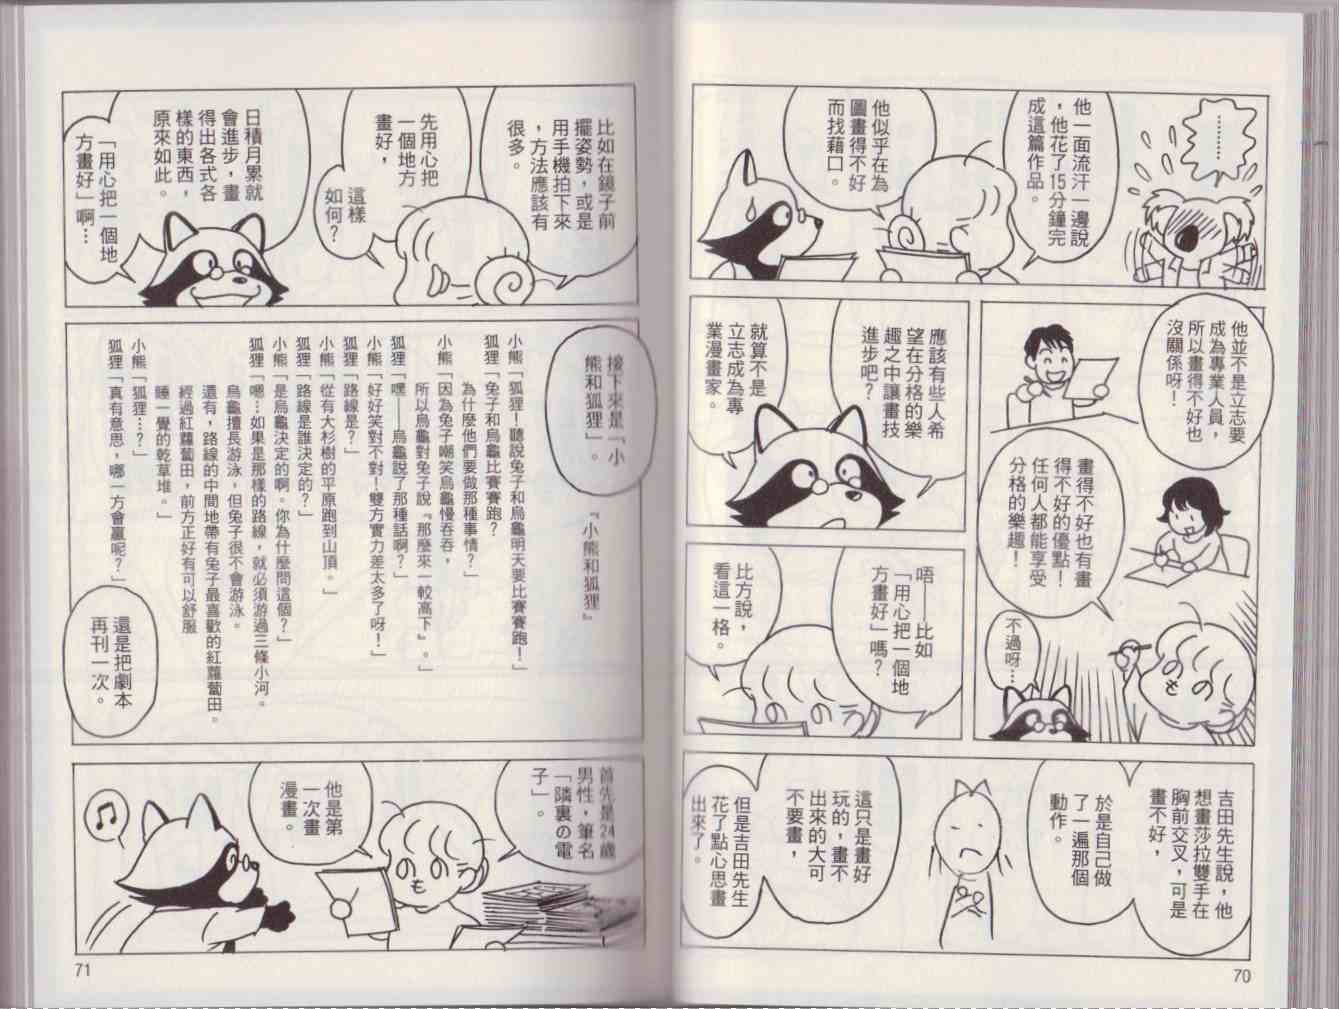 ………
他一面流汗一邊說
，他花了15分鐘完
成這篇作品。
他似乎在為
圖畫得不好
而找藉口。
他並不是立志要
成為專業人員，
所以畫得不好也
沒關係呀！
畫得不好也有畫
得不好的優點！
任何人都能享受
分格的樂趣！
不過呀…
應該有些人希
望在分格的樂
趣之中讓畫技
進步吧？
就算不是
立志成為專
業漫畫家。
唔——比如
「用心把一個地
方畫好」嗎？
比方說，
看這一格。
吉田先生說，他
想畫莎拉雙手在
胸前交叉，可是
畫不好，
於是自己做
了一遍那個
動作。
這只是畫好
玩的，畫不
出來的大可
不要畫，
但是吉田先生
花了點心思畫
出來了。
70
比如在鏡子前
擺姿勢，或是
用手機拍下來
，方法應該有
很多。
先用心把
一個地方
畫好，
這樣
如何？
日積月累就
會進步，畫
得出各式各
樣的東西，
原來如此。
「用心把一個地
方畫好」啊…
接下來是「小
熊和狐狸」。
『小熊和狐狸』
小熊「狐狸！聽說兔子和烏龜明天要比賽賽跑！」
狐狸「兔子和烏龜比賽賽跑？
為什麼他們要做那種事情？」
小熊「因為兔子嘲笑烏龜慢吞吞，
所以烏龜對兔子說『那麼來一較高下』。」
狐狸「嘿——烏龜說了那種話啊？」
小熊「好好笑對不對！雙方實力差太多了呀！」
狐狸「路線是？」
小熊「從有大杉樹的平原跑到山頂。」
狐狸「路線是誰決定的？」
小熊「是烏龜決定的啊。你為什麼問這個？」
狐狸「嗯…如果是那樣的路線，就必須游過三條小河。
烏龜擅長游泳，但兔子很不會游泳。
還有，路線的中間地帶有兔子最喜歡的紅蘿蔔田。
經過紅蘿蔔田，前方正好有可以舒服
睡一覺的乾草堆。」
小熊「狐狸…？」
狐狸「真有意思，哪一方會贏呢？」
還是把劇本
再刊一次。
首先是24歲
男性，筆名
「隣裏の電
子」。
他是第
一次畫
漫畫。
71